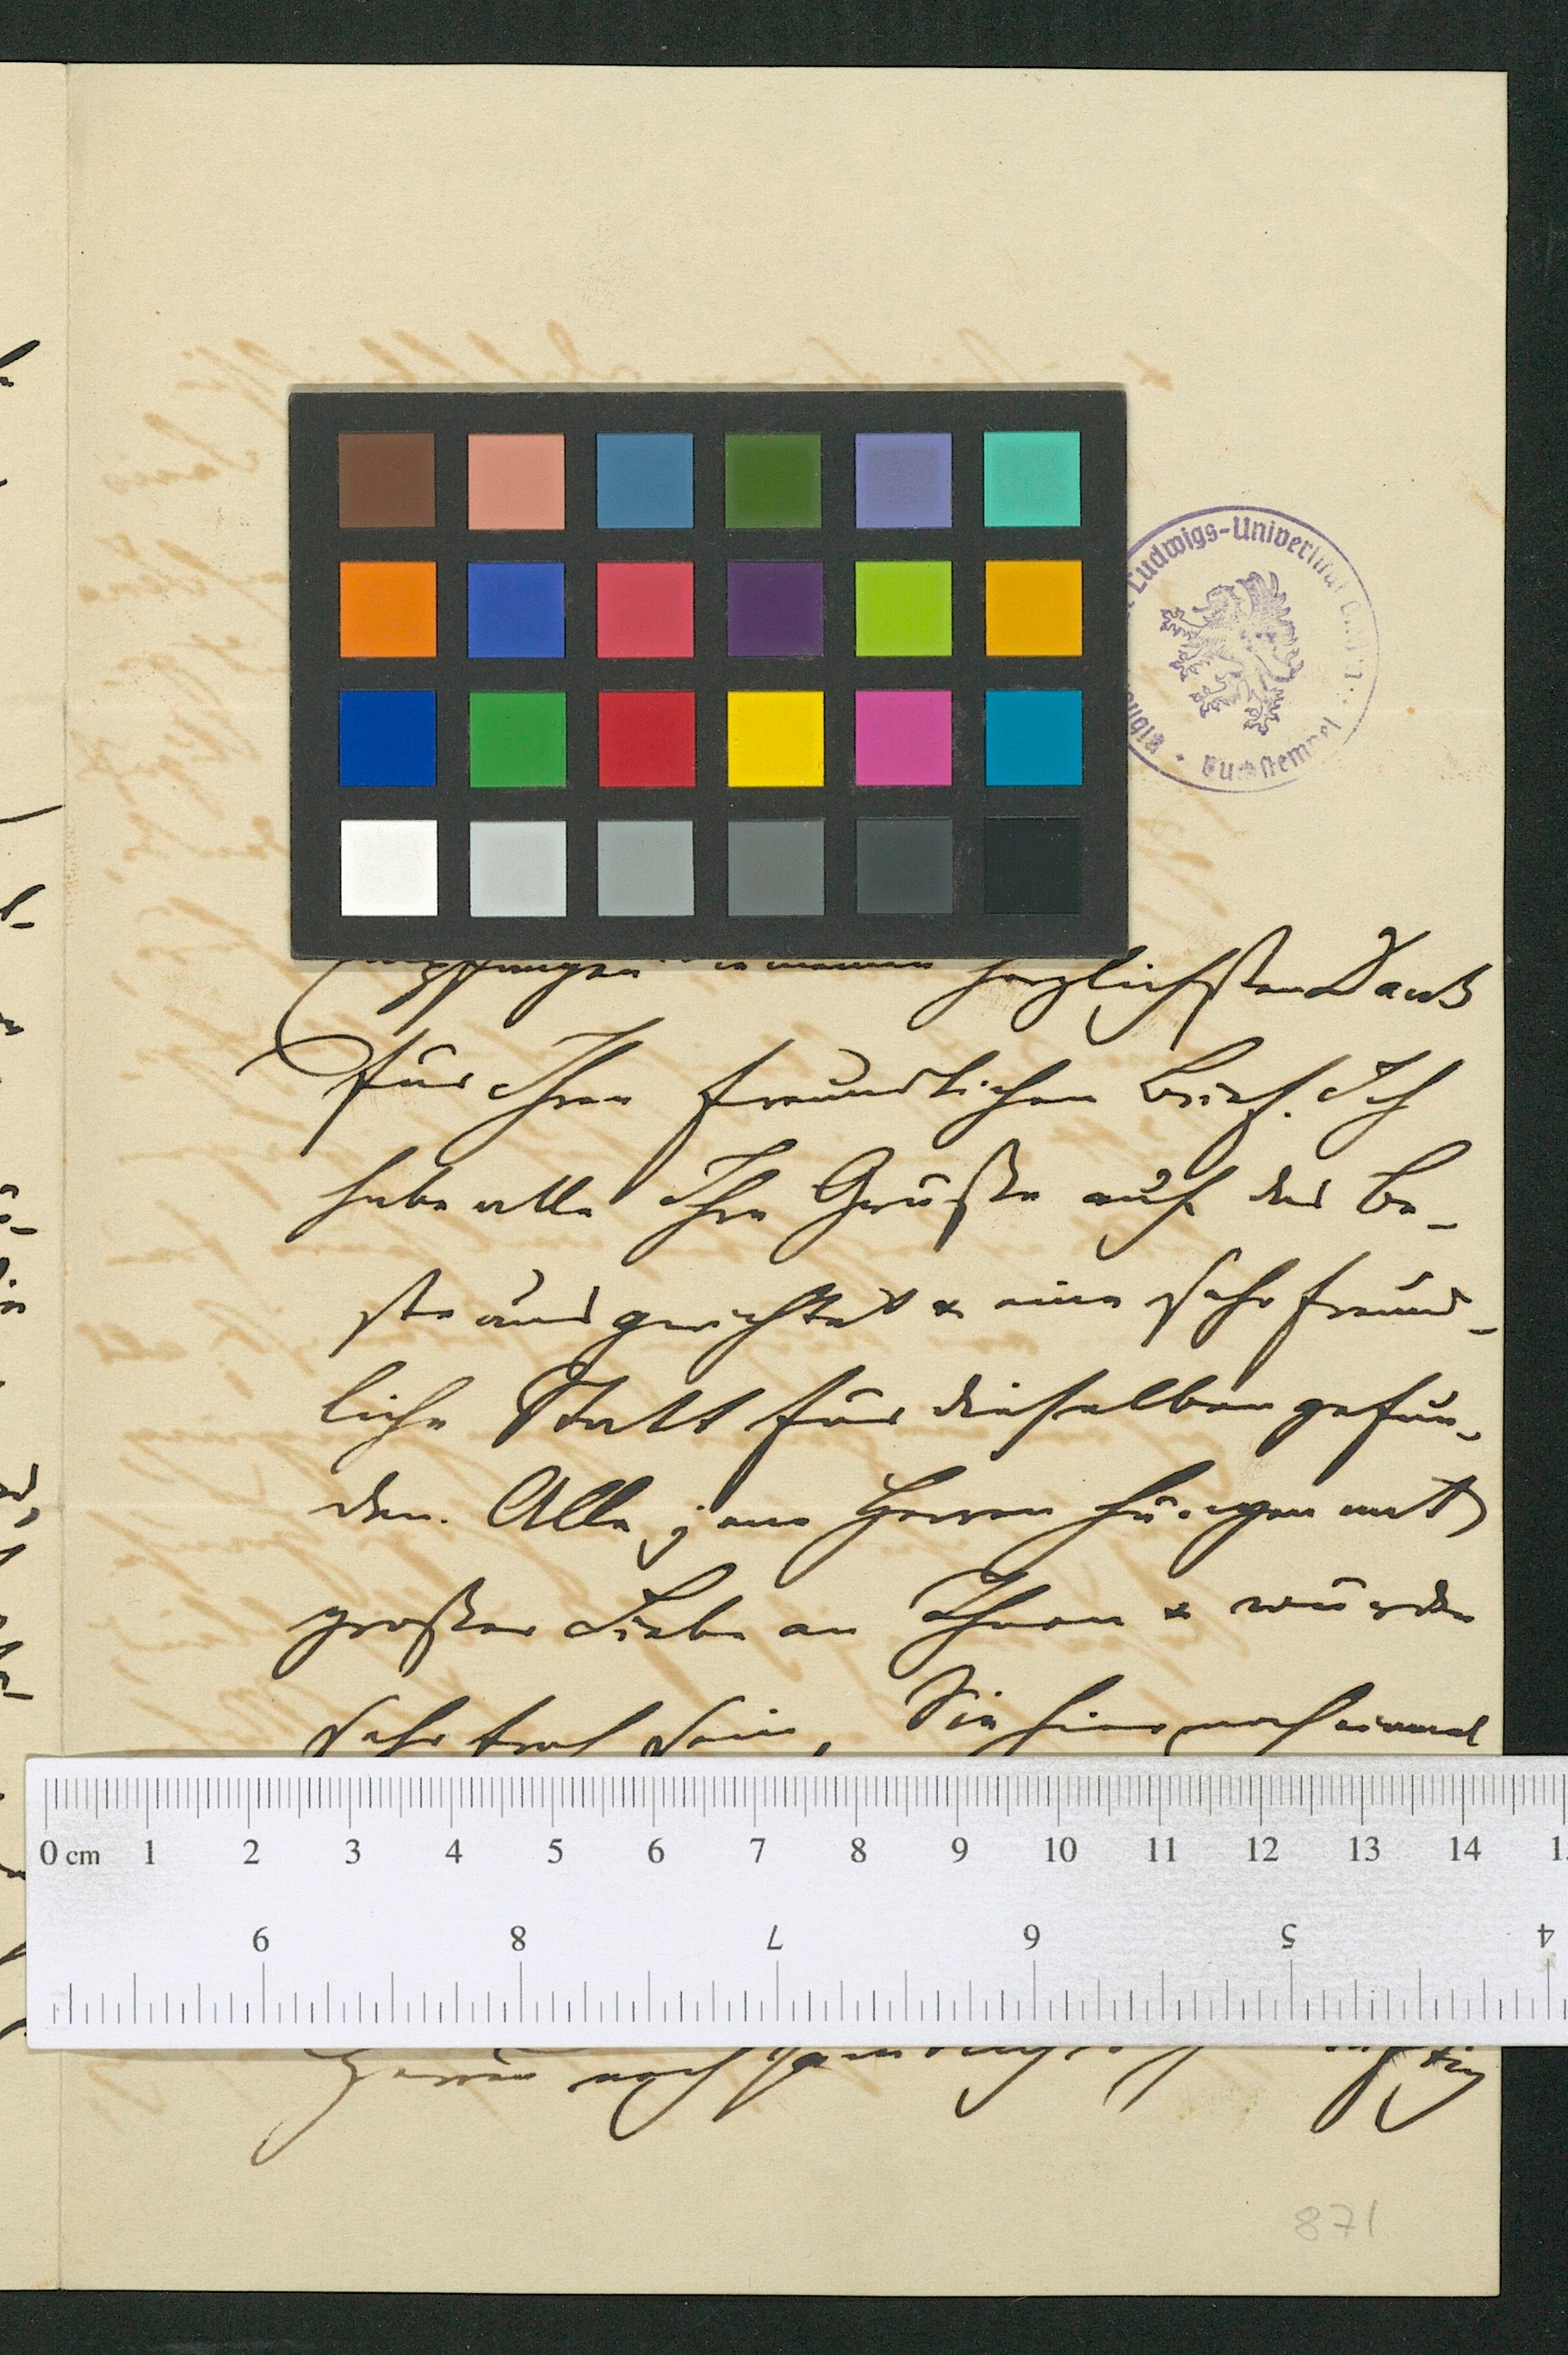 Ludwigs-Universität
Buchstempel
herzlichsten Dank
für Ihren freundlichen Brief. Ich
habe alle Ihre Grüße auf das Be-
ste ausgerichtet & eine sehr freund-
liche Statt für dieselben gefun-
den. Alle jene Herren hängen mit
großer Liebe an Ihnen & würden
sehr froh sein, Sie hier noch einmal
0 cm 1 2 3 4 5 6 7 8 9 10 11 12 13 14
9 8 7 6 5 4
noch
871